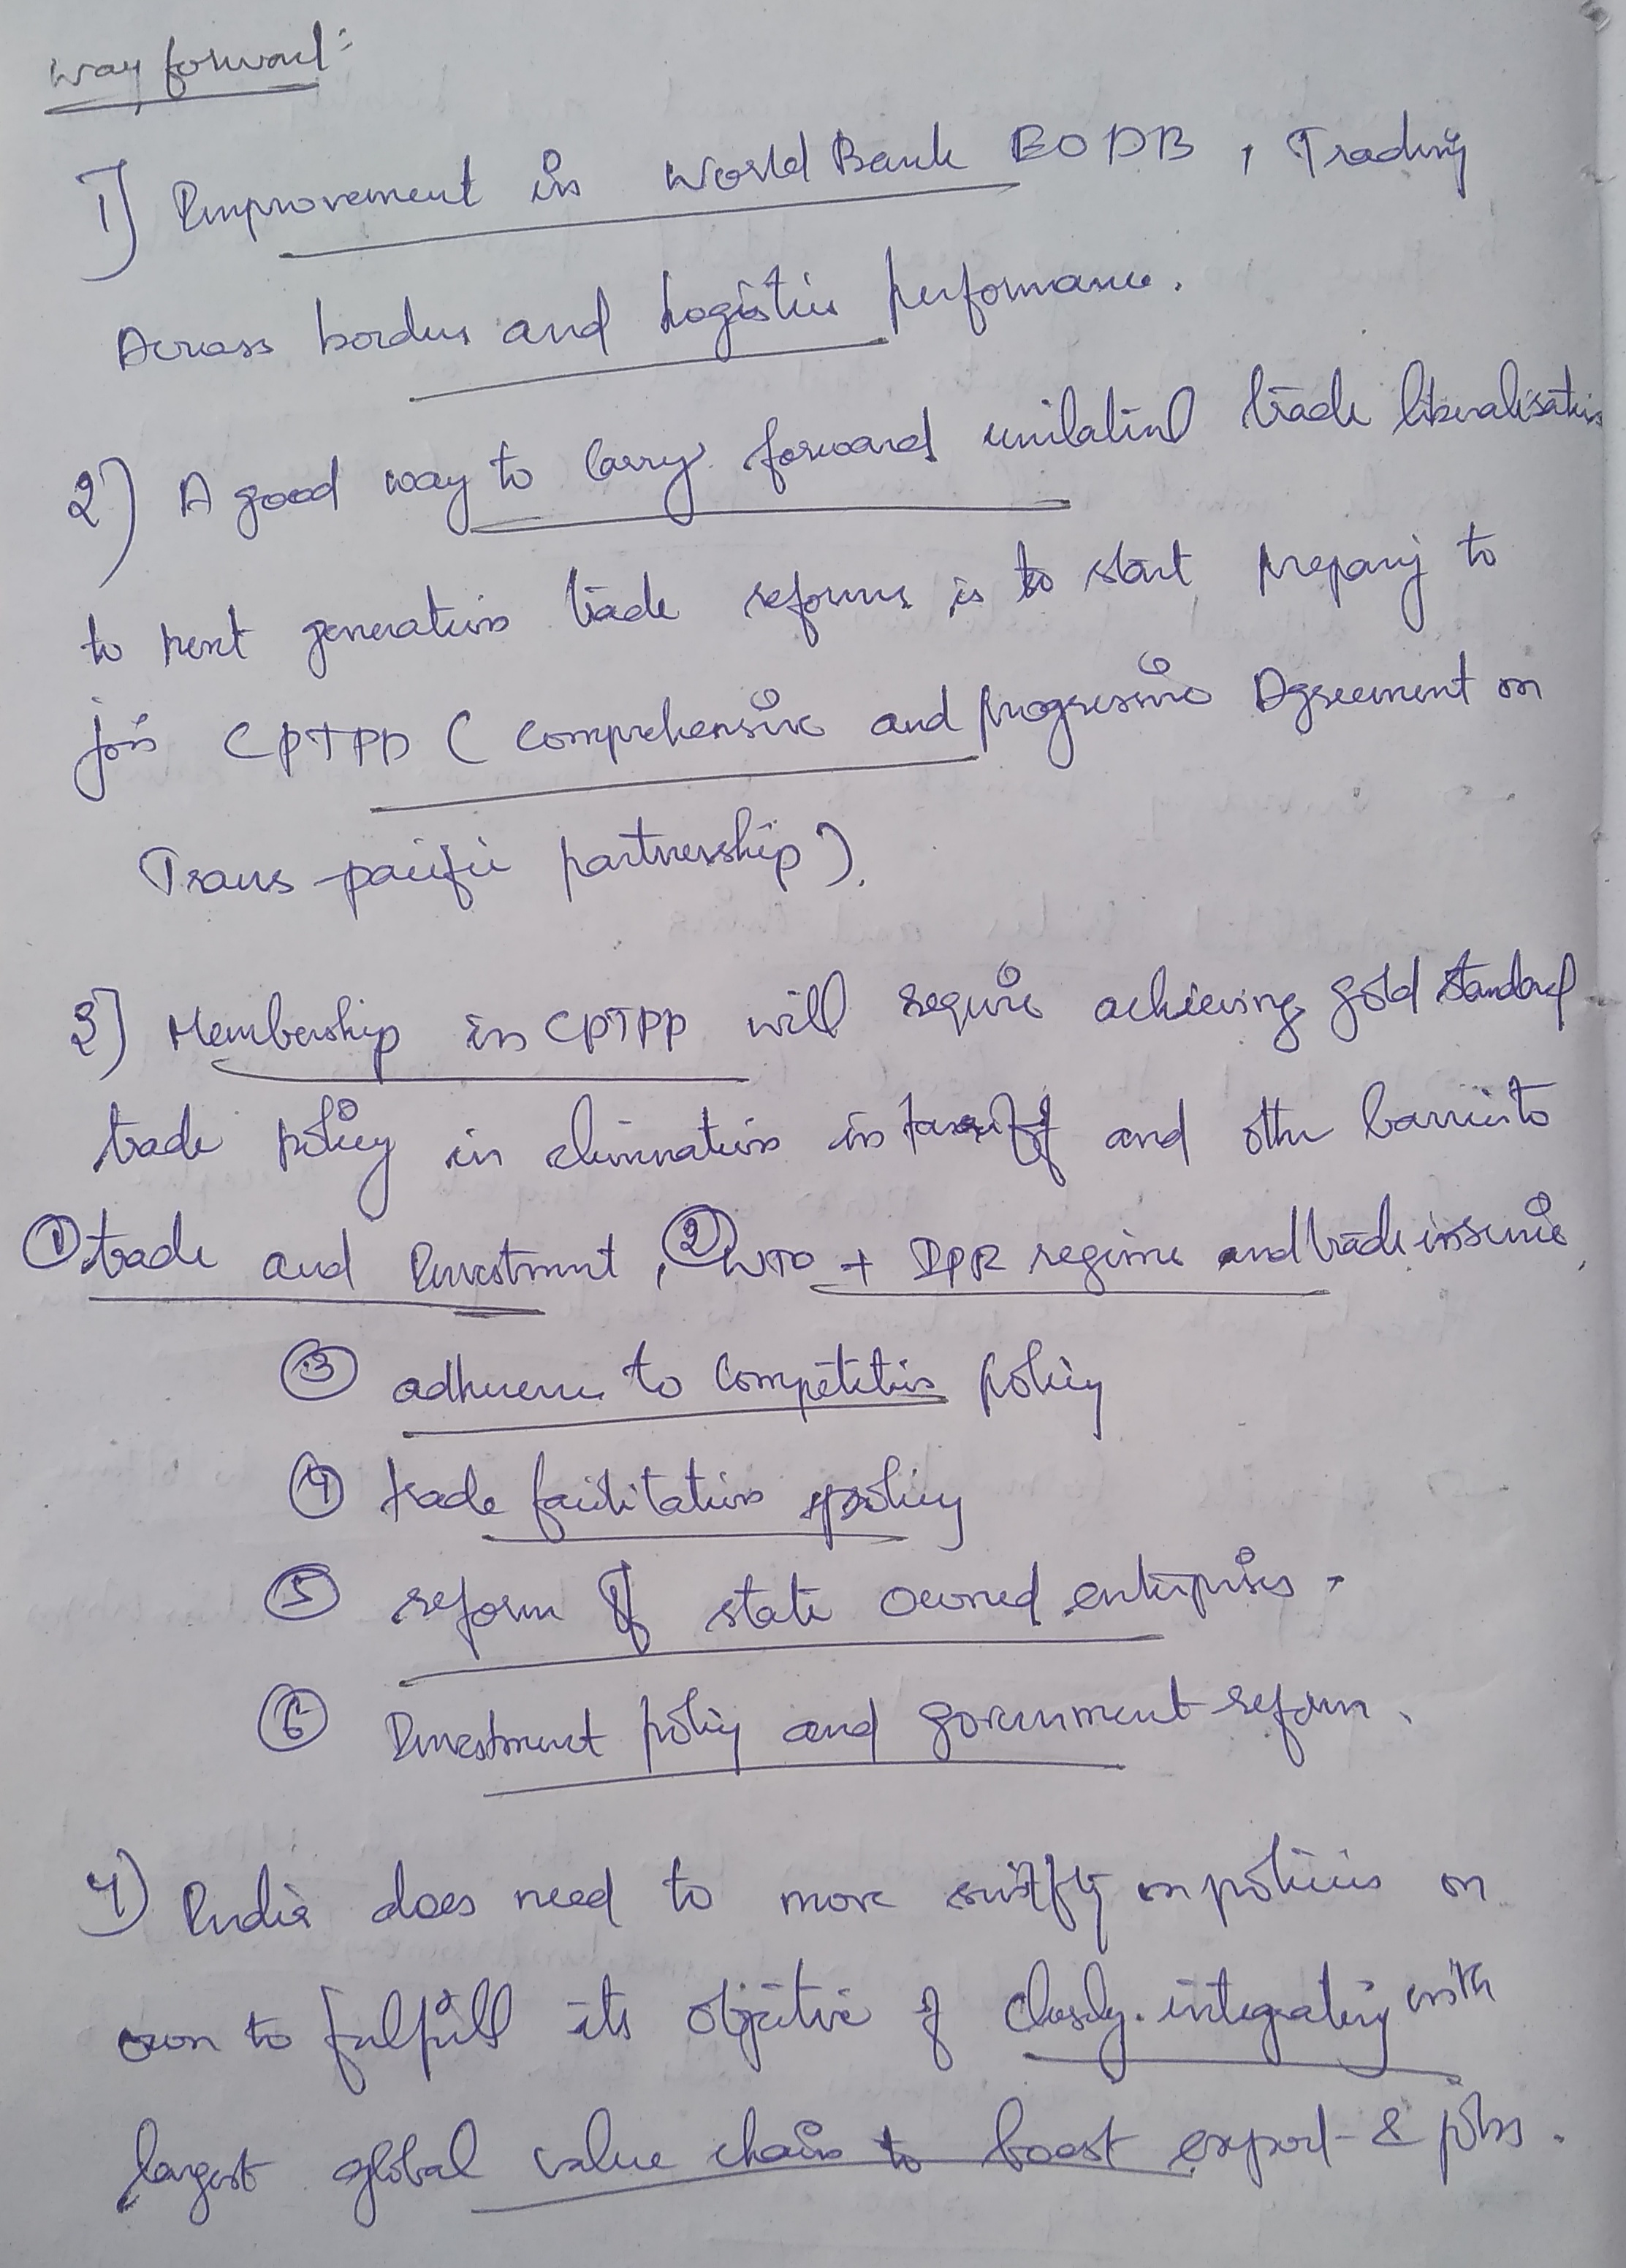 Way forward:
1) Improvement in World Bank EODB, Trading
Across borders and Logistics performance.
2) A good way to carry forward unilateral trade liberalisation
to next generation trade reforms is to start preparing to
join CPTPP (Comprehensive and progressive Agreement on
Trans-pacific partnership).
3) Membership in CPTPP will require achieving gold standard
trade policy in elimination in tariff and other barriers to
① trade and Investment, ② WTO + IPR regime and trade in service,
③ adherence to competition policy
④ trade facilitation policy
⑤ reform of state owned enterprises.
⑥ Investment policy and government reform.
4) India does need to move swiftly on policies on
own to fulfill its objective of closely integrating with
largest global value chain to boost export & jobs.